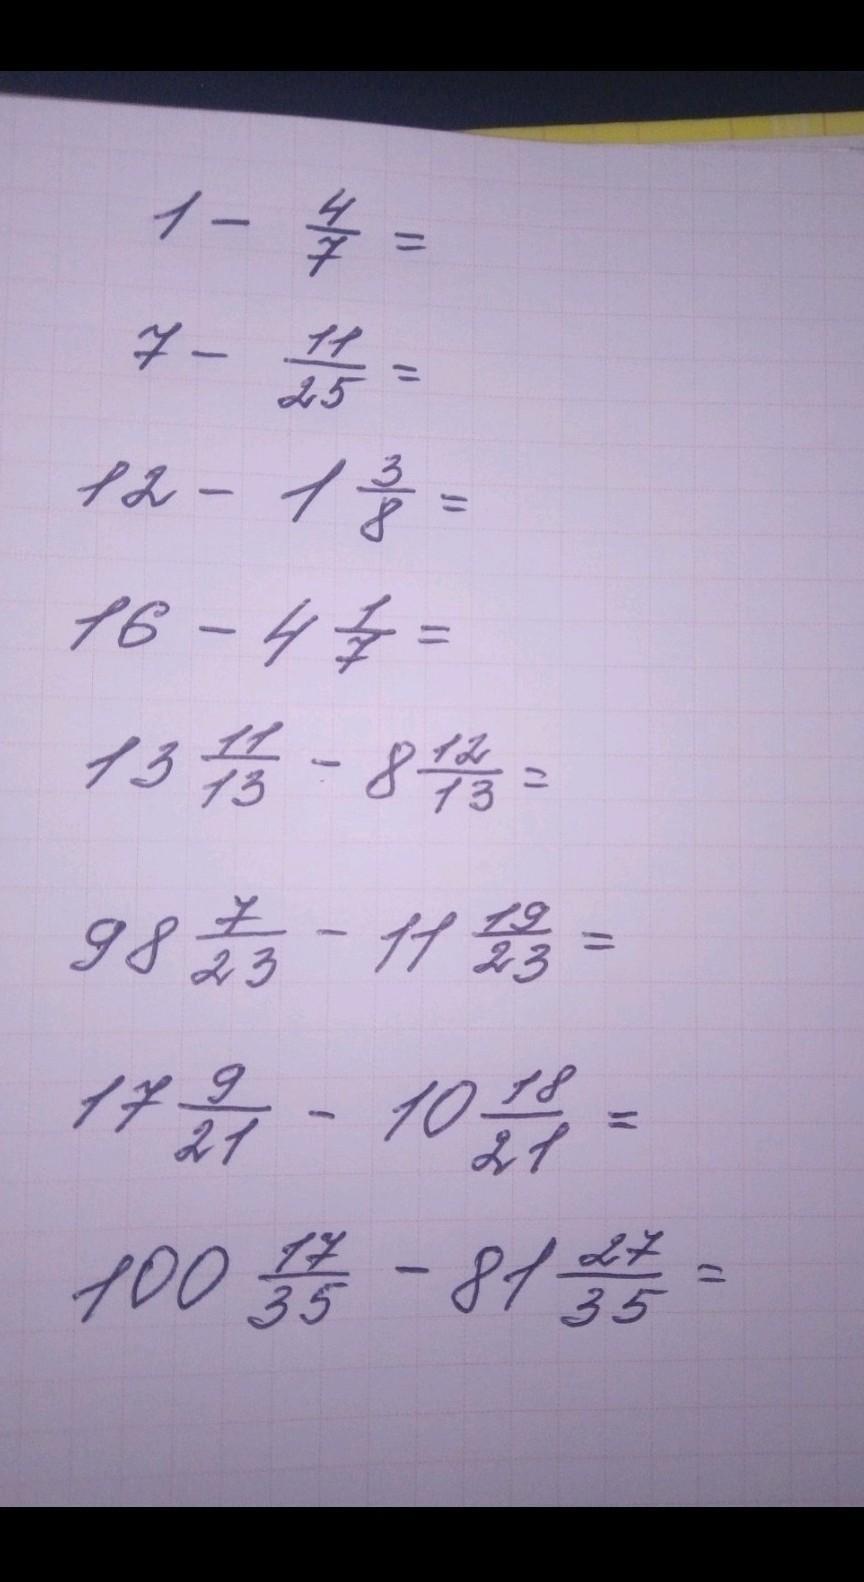 1 - 4/7 =
7 - 11/25 =
12 - 1 3/8 =
16 - 4 1/7 =
13 11/13 - 8 12/13 =
98 7/23 - 11 19/23 =
17 9/21 - 10 18/21 =
100 17/35 - 81 27/35 =